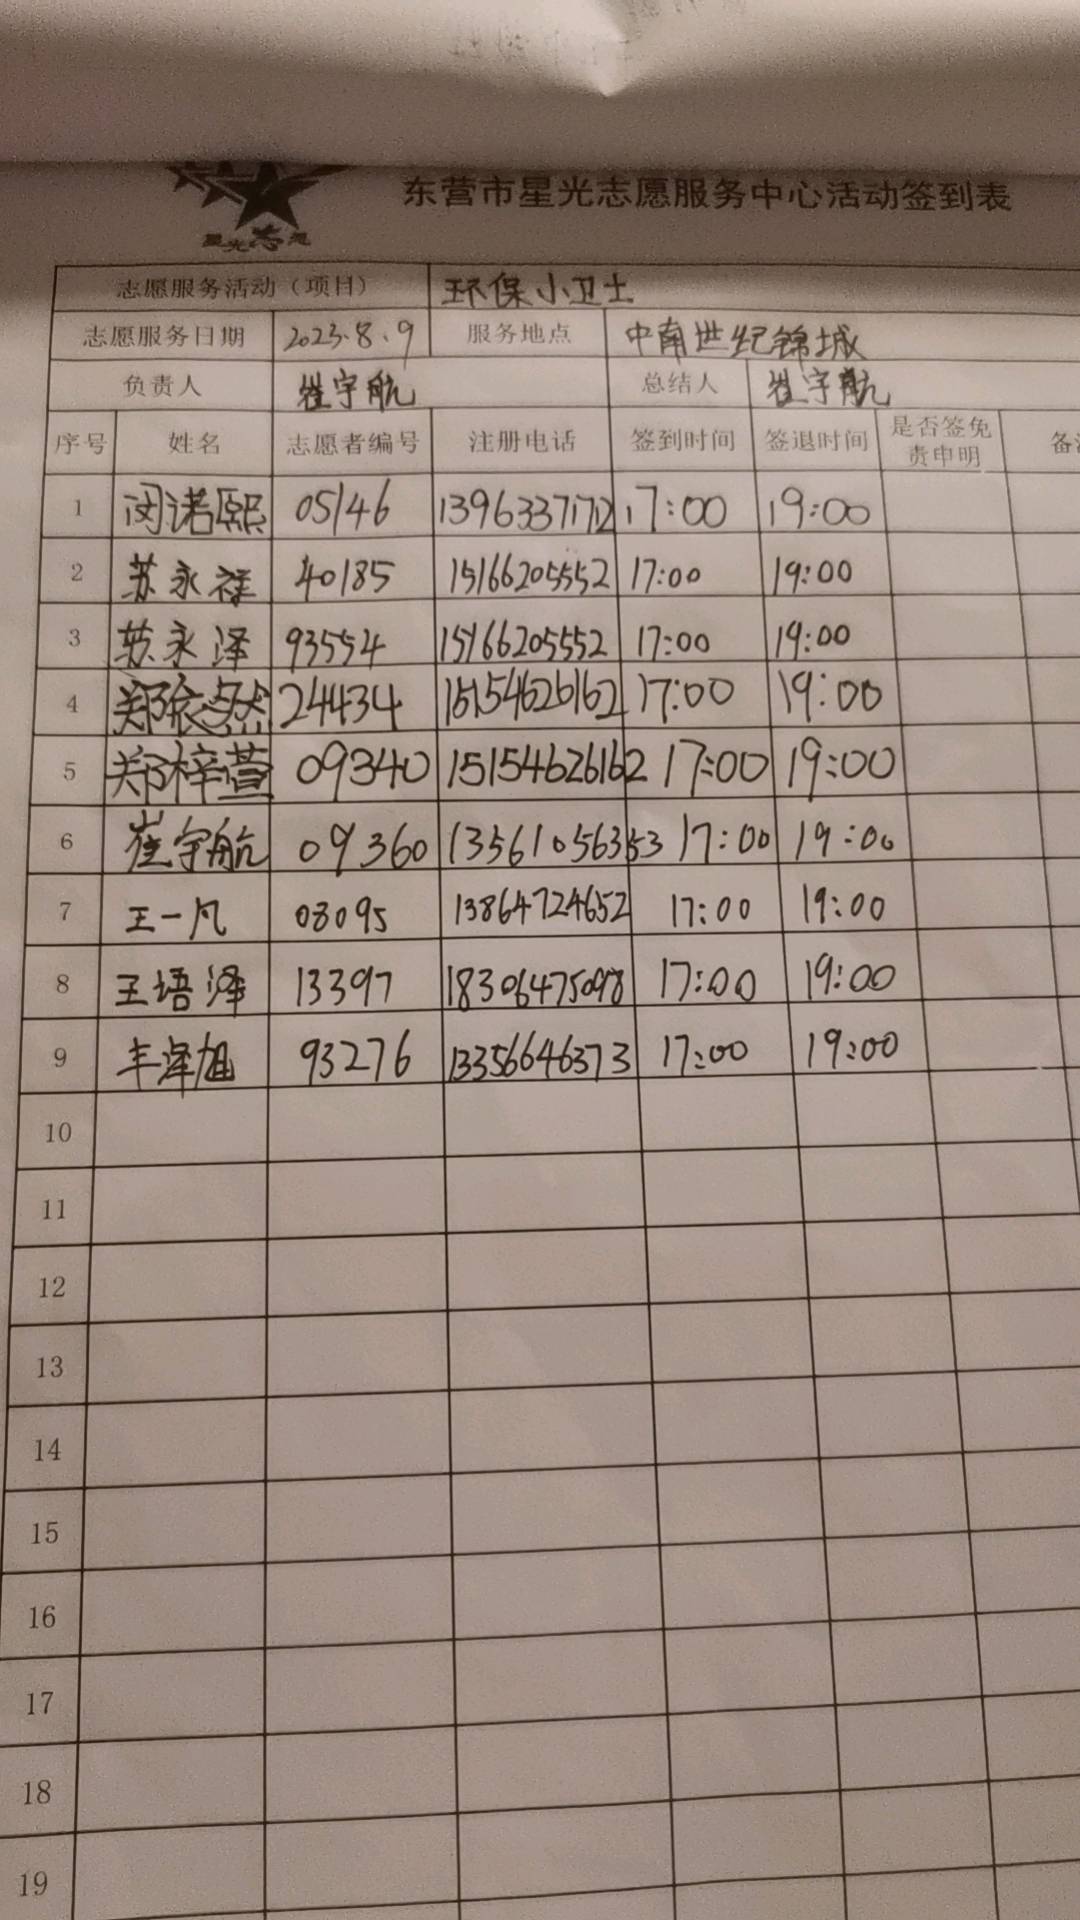 东营市星光志愿服务中心活动签到表
星光志愿
志愿服务活动（项目） 环保小卫士
志愿服务日期 2023.8.9 服务地点 中南世纪锦城
负责人 崔宇航 总结人 崔宇航
序号 姓名 志愿者编号 注册电话 签到时间 签退时间 是否签免责申明
1 闵诺熙 05146 13963371712 17:00 19:00
2 苏永祥 40185 15166205552 17:00 19:00
3 苏永泽 93554 15166205552 17:00 19:00
4 24434 15154626162 17:00 19:00
5 郑梓萱 09340 15154626162 17:00 19:00
6 崔宇航 09360 13561056353 17:00 19:00
7 王一凡 08095 13864724652 17:00 19:00
8 王语泽 13397 18306475098 17:00 19:00
9 丰泽旭 93276 13356646373 17:00 19:00
10
11
12
13
14
15
16
17
18
19